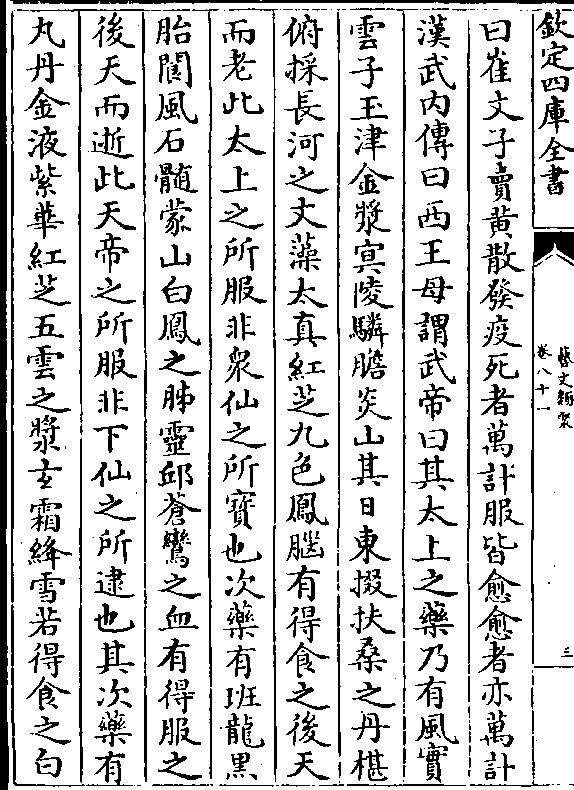 欽定四庫全書
藝文類聚
卷八十一
三
曰崔文子賣黄散發疫死者萬計服皆愈愈者亦萬計
漢武内傳曰西王母謂武帝曰其太上之藥乃有風實
雲子玉津金漿㝠陵驎膽炎山其日東掇扶桑之丹椹
俯採長河之文藻太真紅芝九色鳳腦有得食之後天
而老此太上之所服非衆仙之所寳也次藥有班龍黒
胎閬風石髓蒙山白鳳之肺靈邱蒼鸞之血有得服之
後天而逝此天帝之所服非下仙之所逮也其次藥有
丸丹金液紫華紅芝五雲之漿玄霜絳雪若得食之白